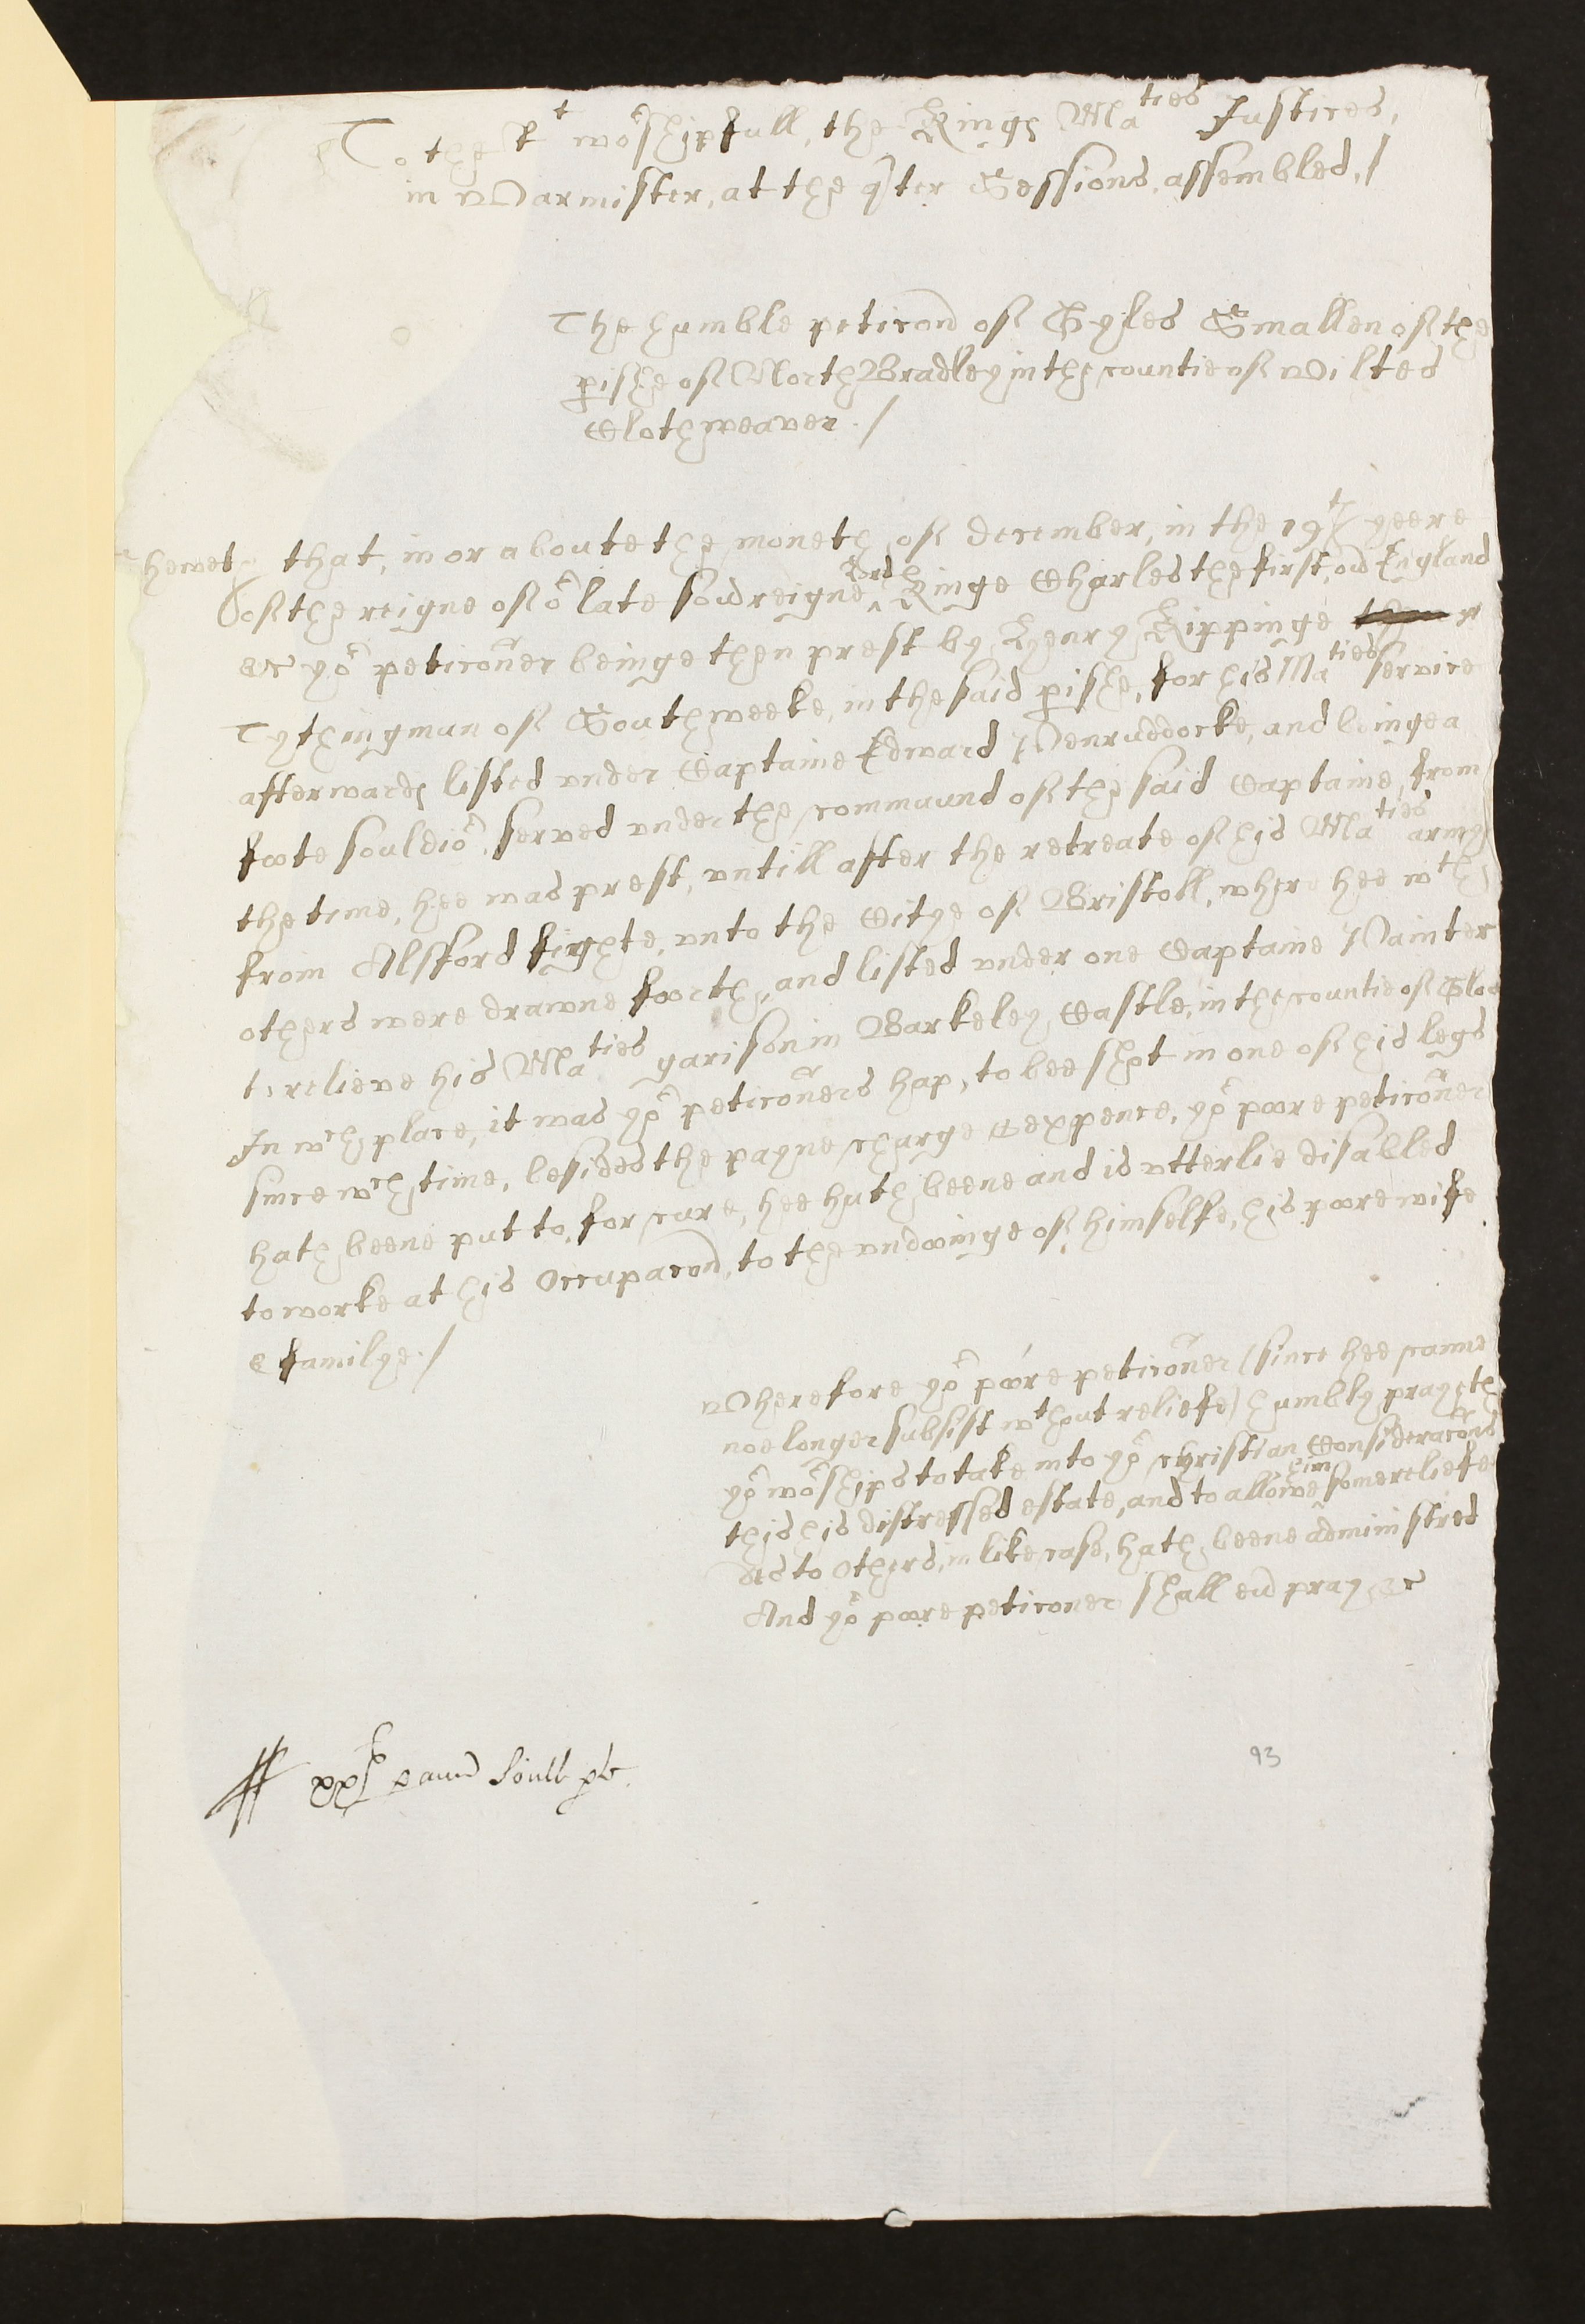 To the rt wo:rshipfull, the Kings Maties Justices,
in Warmister, at the qter Sessions, assembled./
The humble peticon of Gyles Smallen of the
pishe of North Bradley in the countie of Wiltes
Clothweaver./
Sheweth that, in or aboute the moneth of December, in the 19th yeere
of the reigne of or late Sovreigne Lrd Kinge Charles the first, ov England
&c yor peticoner beinge then prest by Henry Kippinge
Tythingman of Southweeke, in the said pishe, for his Maties service
afterwards listed vnder Captaine Edward Penruddocke, and beinge a
foote souldior, served vnder the commaund of the said Captaine, from
the time, hee was prest, vntill after the retreate of his Maties army
from Alsford fighte, vnto the Citye of Bristoll, where hee wth
others were drawne foorth, and listed vnder one Captaine Painter
to relieve his Maties garison in Barkeley Castle, in the countie of Glou
In wch place, it was yor peticoners hap, to bee shot in one of his legs
since wch time, besides the payne, charge & expence, yor poore peticoner
hath beene put to, for cure, hee hath beene and is vtterlie disabled
to worke at his Occupacon, to the vndooinge of himselfe, his poore wife
& familye./
Wherefore yor poore peticoner (since hee canne
noe longer subsist wthout reliefe) humbly prayeth
yor worships to take into yor christian Consideracons
this his distressed estate, and to allowe him some reliefe
as to others, in like case, hath beene administred
And yor poore peticoner shall ev pray &c
93